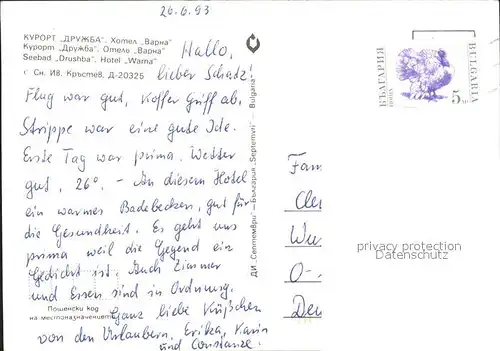 26.6.93
КУРОРТ „ДРУЖБА". Хотел „Варна"
Курорт „Дружба". Отель „Варна"
Seebad „Drushba". Hotel „Warna"
г Сн. Ив. Кръстев, Д-20325
Hallo,
lieber Schatz!
Flug war gut, Koffer Griff ab,
Strippe war eine gute Ide.
Erste Tag war prima. Wetter
gut, 26°. - In diesem Hotel
ein warmes Badebecken, gut für
die Gesundheit. Es geht uns
prima weil die Gegend ein
Gedicht ist. Auch Zimmer
und Essen sind in Ordnung.
Пощенски код
на местоназначението
Ganz liebe Küßchen
von den Urlaubern, Erika, Karin
und Constanze.
ДИ „Септември" — България „Septemvri" — Bulgaria
БЪЛГАРИЯ
поща
5
BULGARIA
Fam
Wu
O-
Deu
privacy protection
Datenschutz